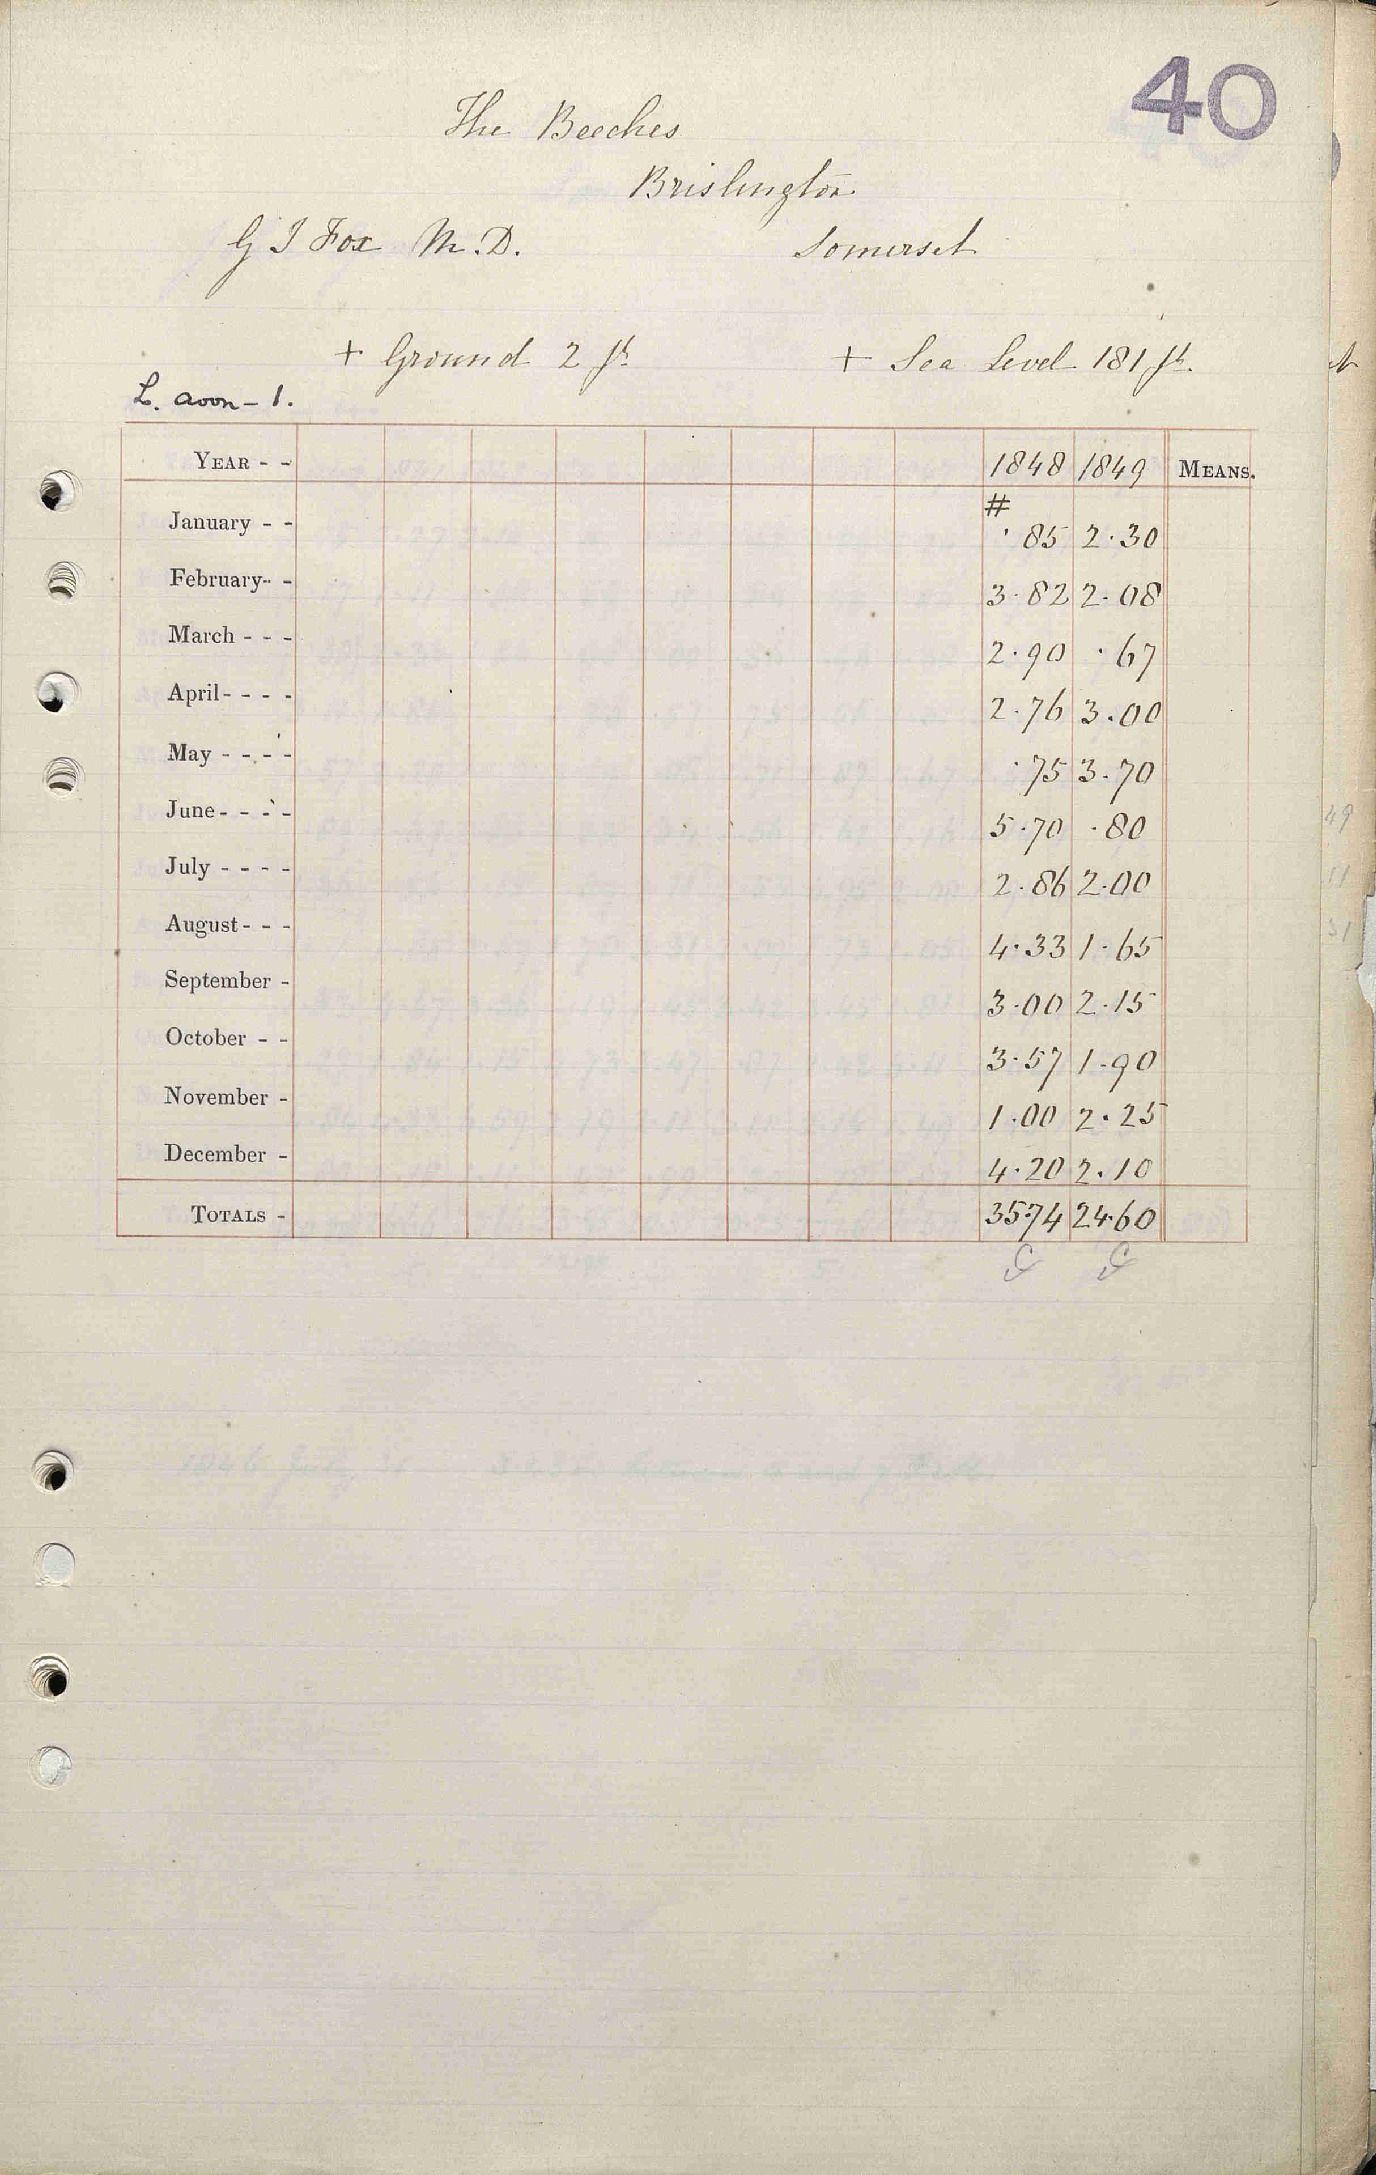 40
The Beeches
Brislington
G J Fox M.D. Somerset
+ Ground 2 ft. + Sea Level 181 ft.
L. Avon - 1.
YEAR - - 1848 1849 MEANS.
#
January - - ·85 2·30
February- - 3·82 2·08
March - - - 2·90 ·67
April- - - - 2·76 3·00
May - - - - ·75 3·70
June- - - - 5·70 ·80
July - - - - 2·86 2·00
August- - - 4·33 1·65
September - 3·00 2·15
October - - 3·57 1·90
November - 1·00 2·25
December - 4·20 2·10
TOTALS - 35·74 24·60